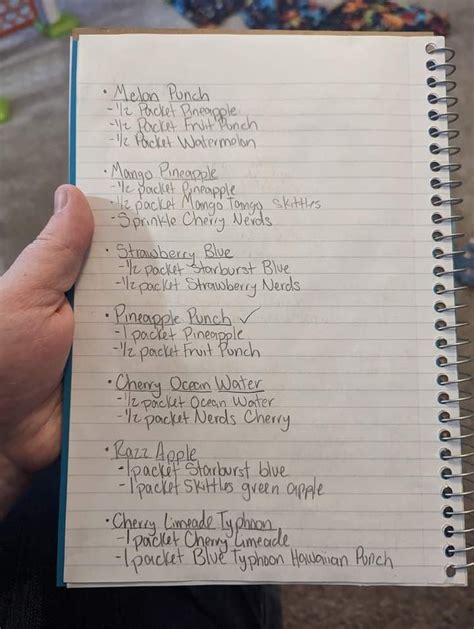 · Melon Punch
-1/2 Packet Pineapple
-1/2 Packet Fruit Punch
-1/2 Packet Watermelon
· Mango Pineapple
-1/2 packet Pineapple
-1/2 packet Mango Tango Skittles
-Sprinkle Cherry Nerds
· Strawberry Blue
-1/2 packet Starburst Blue
-1/2 packet Strawberry Nerds
· Pineapple Punch ✓
-1 packet Pineapple
-1/2 packet Fruit Punch
· Cherry Ocean Water
-1/2 packet Ocean Water
-1/2 packet Nerds Cherry
· Razz Apple
-1 packet Starburst blue
-1 packet Skittles green apple
· Cherry Limeade Typhoon
-1 packet Cherry Limeade
-1 packet Blue Typhoon Hawaiian Punch